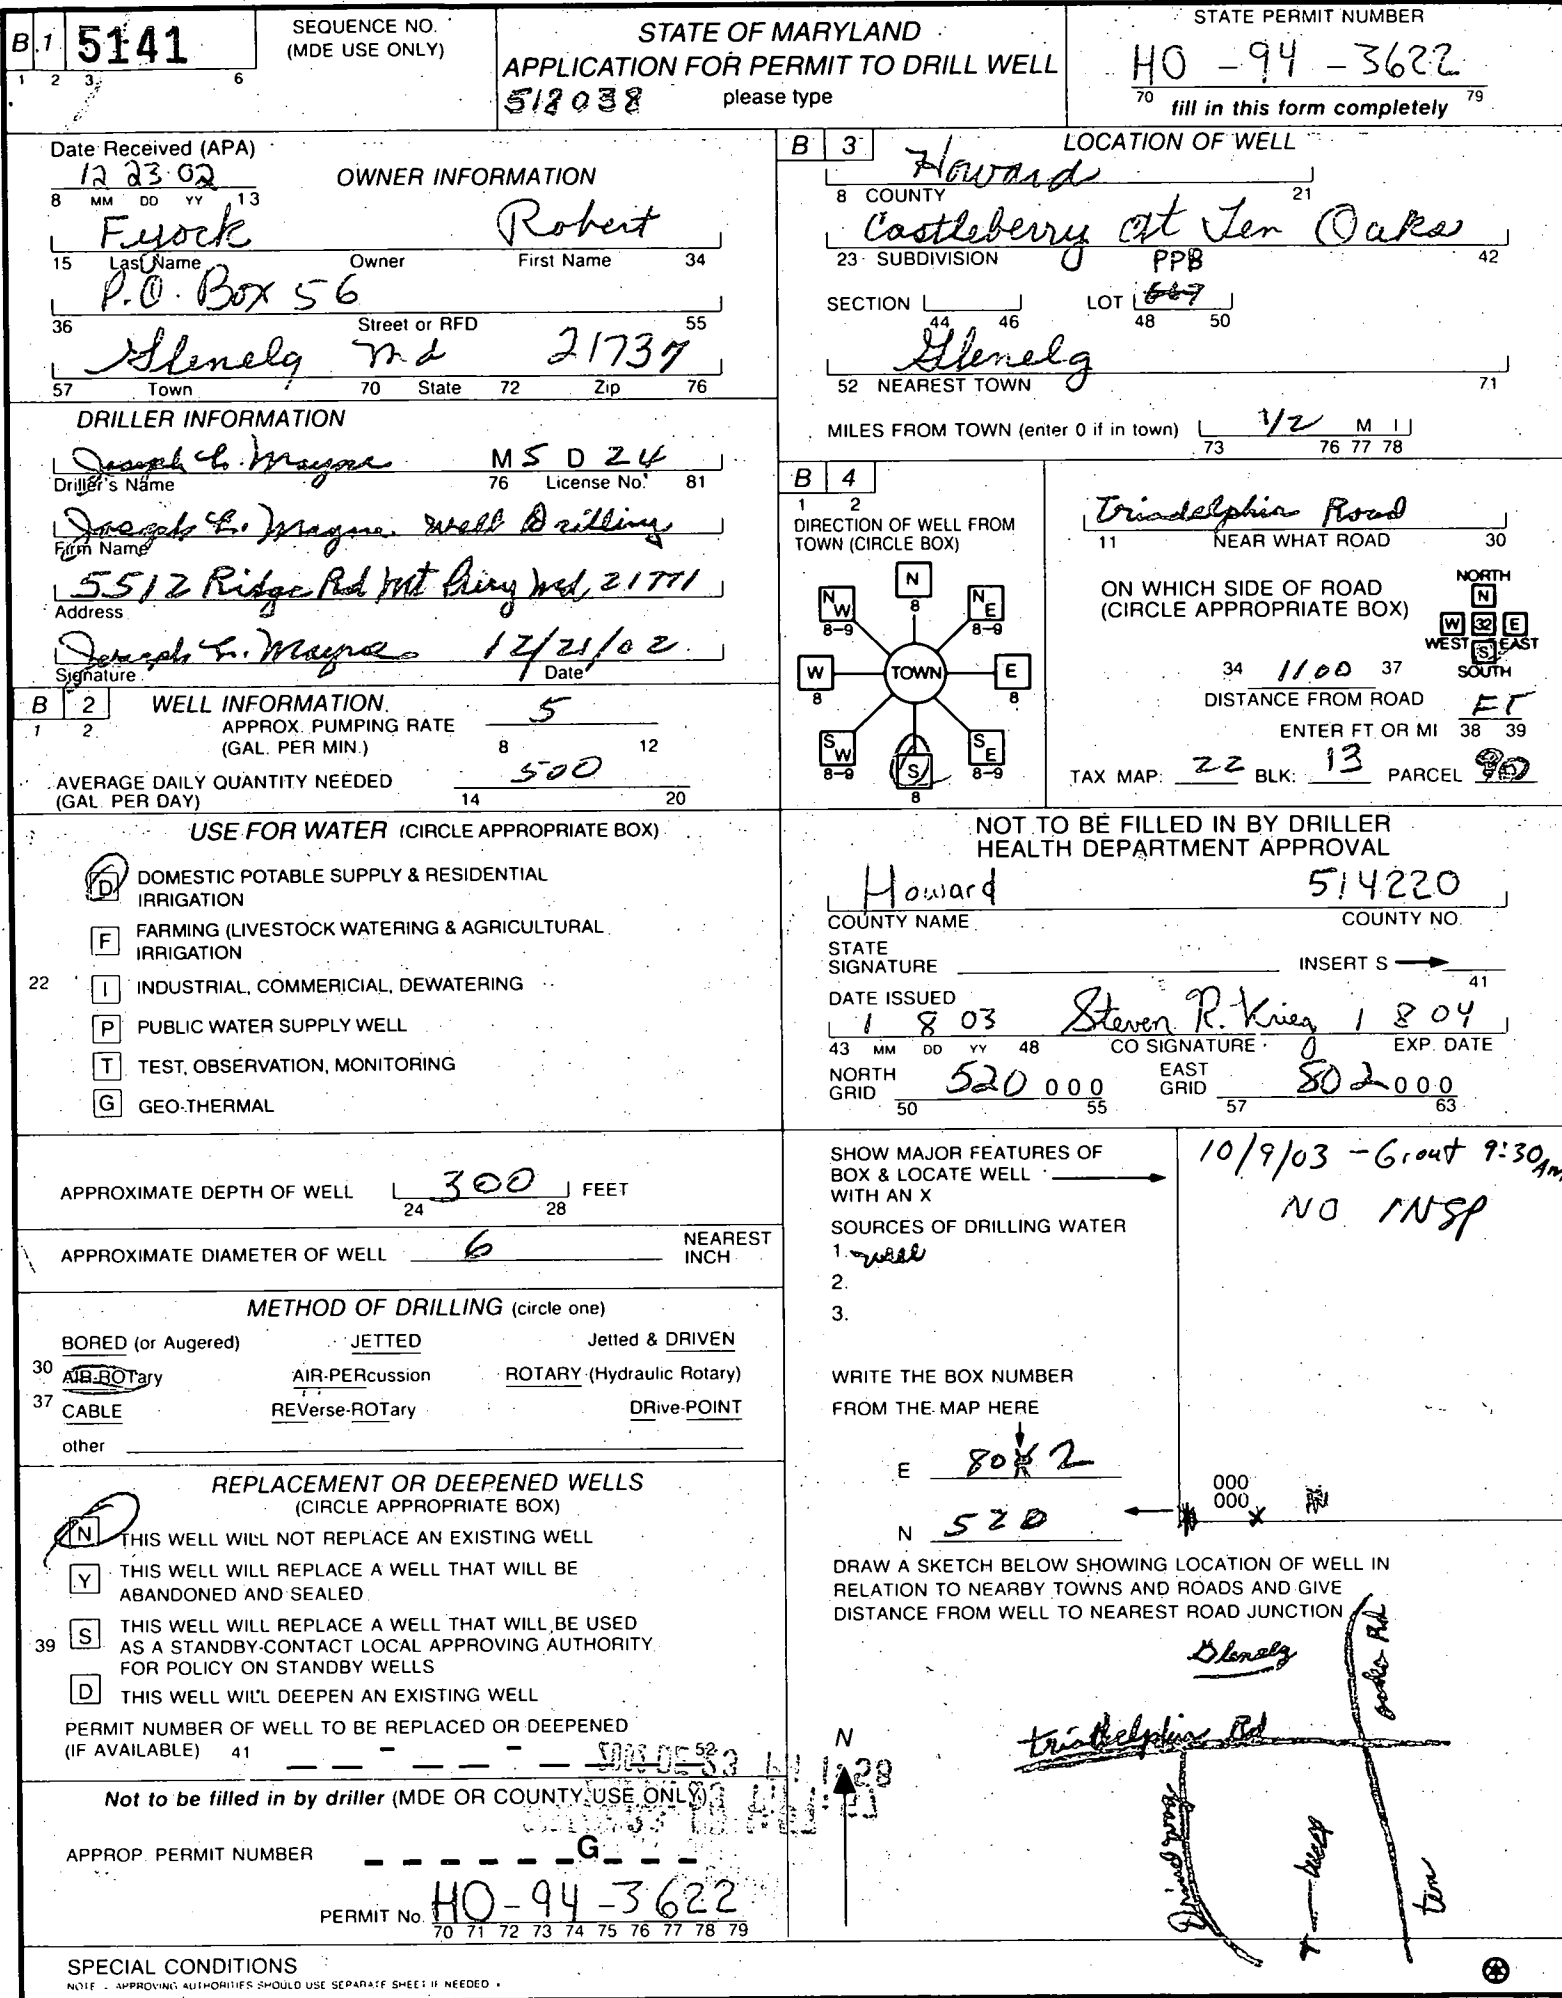 B 1 5141
1 2 3 6
SEQUENCE NO.
(MDE USE ONLY)
STATE OF MARYLAND
APPLICATION FOR PERMIT TO DRILL WELL
518038 please type
STATE PERMIT NUMBER
HO - 94 - 3622
70 79
fill in this form completely
Date Received (APA)
12 23 02
8 MM DD YY 13
OWNER INFORMATION
Fyock Robert
15 Last Name Owner First Name 34
P.O. Box 56
36 Street or RFD 55
Glenelg Md 21737
57 Town 70 State 72 Zip 76
DRILLER INFORMATION
Joseph L. Mayne M S D 24
Driller's Name 76 License No. 81
Joseph L. Mayne Well Drilling
Firm Name
5512 Ridge Rd Mt Airy Md, 21771
Address
Joseph L. Mayne 12/21/02
Signature Date
B 2 WELL INFORMATION
1 2
APPROX. PUMPING RATE 5
(GAL. PER MIN.) 8 12
AVERAGE DAILY QUANTITY NEEDED 500
(GAL. PER DAY) 14 20
USE FOR WATER (CIRCLE APPROPRIATE BOX)
D DOMESTIC POTABLE SUPPLY & RESIDENTIAL
IRRIGATION
F FARMING (LIVESTOCK WATERING & AGRICULTURAL
IRRIGATION
22 I INDUSTRIAL, COMMERICIAL, DEWATERING
P PUBLIC WATER SUPPLY WELL
T TEST, OBSERVATION, MONITORING
G GEO-THERMAL
APPROXIMATE DEPTH OF WELL 300 FEET
24 28
APPROXIMATE DIAMETER OF WELL 6 NEAREST
INCH
METHOD OF DRILLING (circle one)
BORED (or Augered) JETTED Jetted & DRIVEN
30 AIR-ROTary AIR-PERcussion ROTARY (Hydraulic Rotary)
37 CABLE REVerse-ROTary DRive-POINT
other
REPLACEMENT OR DEEPENED WELLS
(CIRCLE APPROPRIATE BOX)
N THIS WELL WILL NOT REPLACE AN EXISTING WELL
Y THIS WELL WILL REPLACE A WELL THAT WILL BE
ABANDONED AND SEALED
39 S THIS WELL WILL REPLACE A WELL THAT WILL BE USED
AS A STANDBY-CONTACT LOCAL APPROVING AUTHORITY
FOR POLICY ON STANDBY WELLS
D THIS WELL WILL DEEPEN AN EXISTING WELL
PERMIT NUMBER OF WELL TO BE REPLACED OR DEEPENED
(IF AVAILABLE) 41 52
Not to be filled in by driller (MDE OR COUNTY USE ONLY)
APPROP. PERMIT NUMBER G
PERMIT No. HO - 94 - 3622
70 71 72 73 74 75 76 77 78 79
SPECIAL CONDITIONS
NOTE - APPROVING AUTHORITIES SHOULD USE SEPARATE SHEET IF NEEDED
B 3 LOCATION OF WELL
Howard
8 COUNTY 21
Castleberry At Ten Oaks
23 SUBDIVISION 42
PPB
SECTION LOT
44 46 48 50
Glenelg
52 NEAREST TOWN 71
MILES FROM TOWN (enter 0 if in town) 1/2 M I
73 76 77 78
B 4
1 2
DIRECTION OF WELL FROM
TOWN (CIRCLE BOX)
N
8
NW NE
8-9 8-9
W TOWN E
8 8
SW S SE
8-9 8 8-9
Triadelphia Road
11 NEAR WHAT ROAD 30
ON WHICH SIDE OF ROAD
(CIRCLE APPROPRIATE BOX)
NORTH
N
W 32 E
WEST S EAST
SOUTH
34 1100 37
DISTANCE FROM ROAD
ENTER FT OR MI FT
38 39
TAX MAP: 22 BLK: 13 PARCEL 90
NOT TO BE FILLED IN BY DRILLER
HEALTH DEPARTMENT APPROVAL
Howard 514220
COUNTY NAME COUNTY NO.
STATE
SIGNATURE INSERT S
41
DATE ISSUED
1 8 03 Steven R. Krieg 1 8 04
43 MM DD YY 48 CO SIGNATURE EXP. DATE
NORTH
GRID 520 000
50 55
EAST
GRID 802 000
57 63
SHOW MAJOR FEATURES OF
BOX & LOCATE WELL
WITH AN X
10/9/03 - Grout 9:30 AM
NO INSP
SOURCES OF DRILLING WATER
1. well
2.
3.
WRITE THE BOX NUMBER
FROM THE MAP HERE
E 802
N 520
000
000
X
DRAW A SKETCH BELOW SHOWING LOCATION OF WELL IN
RELATION TO NEARBY TOWNS AND ROADS AND GIVE
DISTANCE FROM WELL TO NEAREST ROAD JUNCTION
Glenelg
triadelphia Rd
ten oaks Rd
N